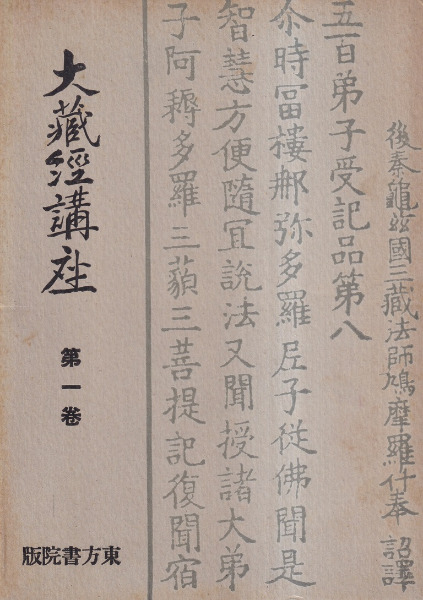 後秦龜茲國三藏法師鳩摩羅什奉 詔譯
五百弟子受記品第八
尒時冨樓那弥多羅尼子從佛聞是
智慧方便隨冝說法又聞授諸大弟
子阿耨多羅三藐三菩提記復聞宿
大藏經講座
第一卷
東方書院版